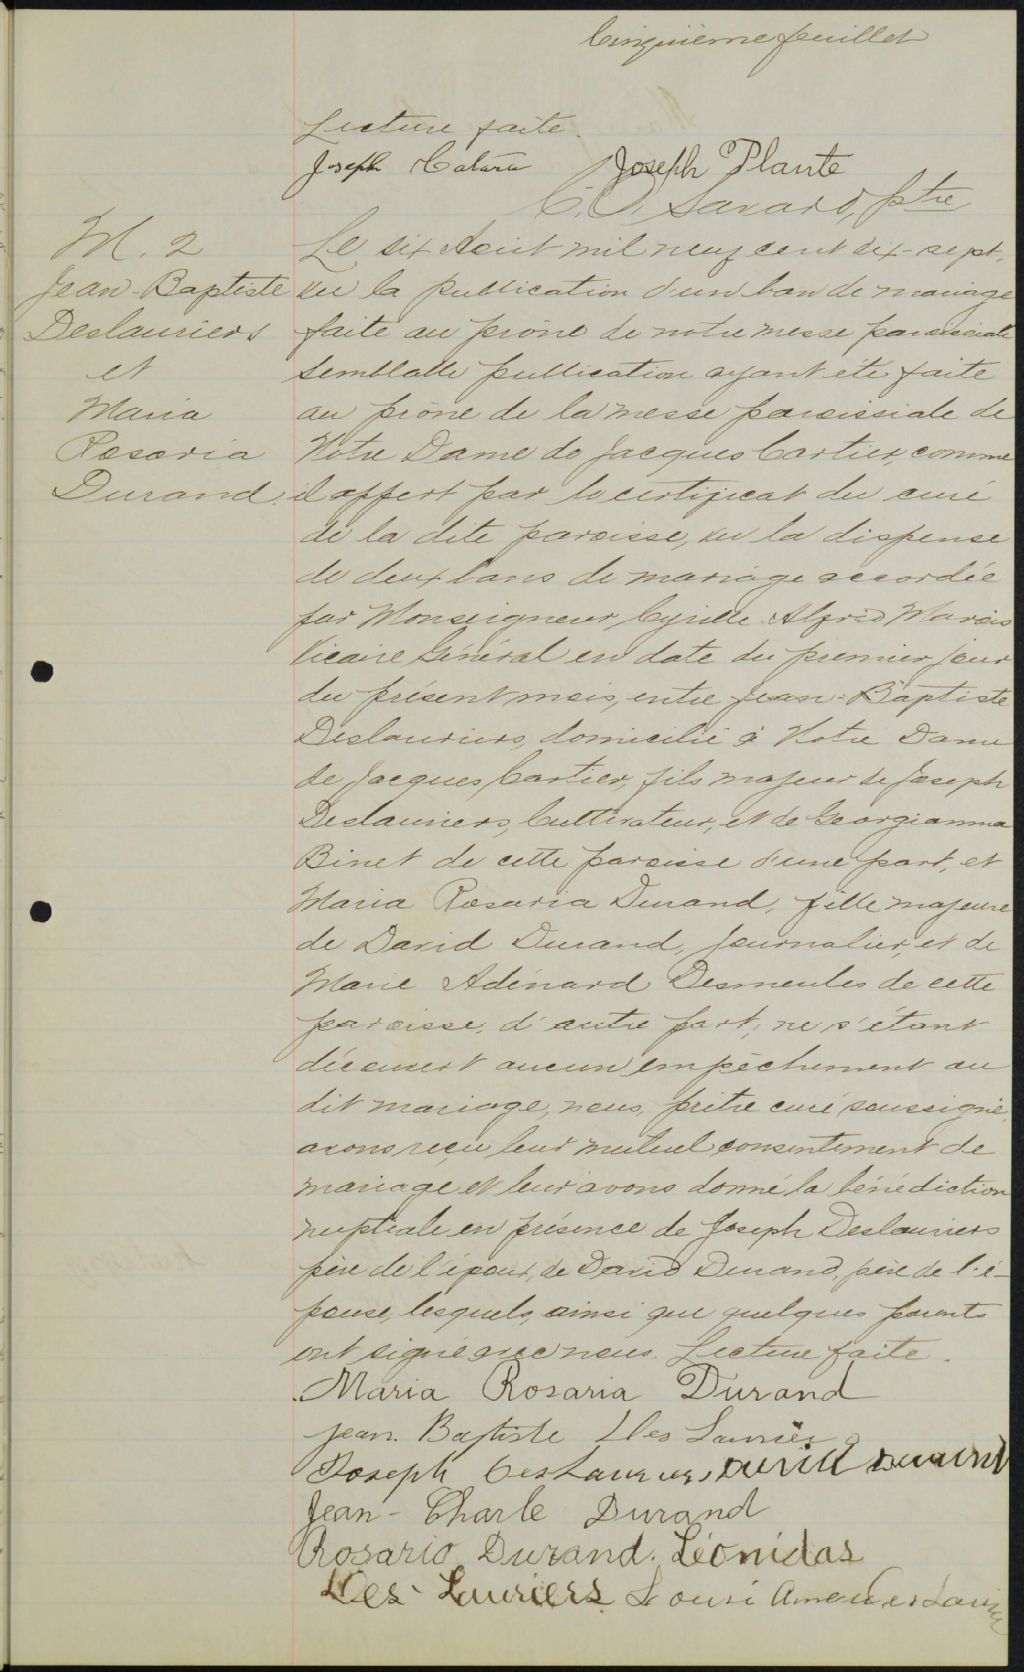 Cinquième feuillet
Lecture faite.
Joseph Joseph Plante
Savard, ptre
M. 2
Jean-Baptiste
Deslauriers
et
Maria
Rosaria
Durand.
Le six Août mil neuf cent dix-sept,
vu la publication d'un ban de mariage
faite au prône de notre messe paroissiale
semblable publication ayant été faite
au prône de la messe paroissiale de
Notre Dame de Jacques Cartier, comme
il appert par le certificat du curé
de la dite paroisse, vu la dispense
de deux bans de mariage accordée
par Monseigneur Cyrille Alfred Marois
Vicaire Général en date du premier jour
du présent mois, entre Jean-Baptiste
Deslauriers, domicilié à Notre Dame
de Jacques Cartier, fils majeur de Joseph
Deslauriers, Cultivateur, et de Georgianna
Binet de cette paroisse d'une part, et
Maria Rosaria Durand, fille majeure
de David Durand, journalier, et de
Marie Adénard Desmeules de cette
paroisse, d'autre part, ne s'étant
découvert aucun empêchement au
dit mariage, nous, prêtre curé soussigné,
avons reçu leur mutuel consentement de
mariage et leur avons donné la bénédiction
nuptiale en présence de Joseph Deslauriers
père de l'époux, de David Durand, père de l'é-
pouse, lesquels, ainsi que quelques parents
ont signé avec nous. Lecture faite.
Maria Rosaria Durand
Jean Baptiste Des Lauriers
Joseph DesLauriers, David Durand
Jean-Charle Durand
Rosario Durand. Léonidas
Des-Lauriers.